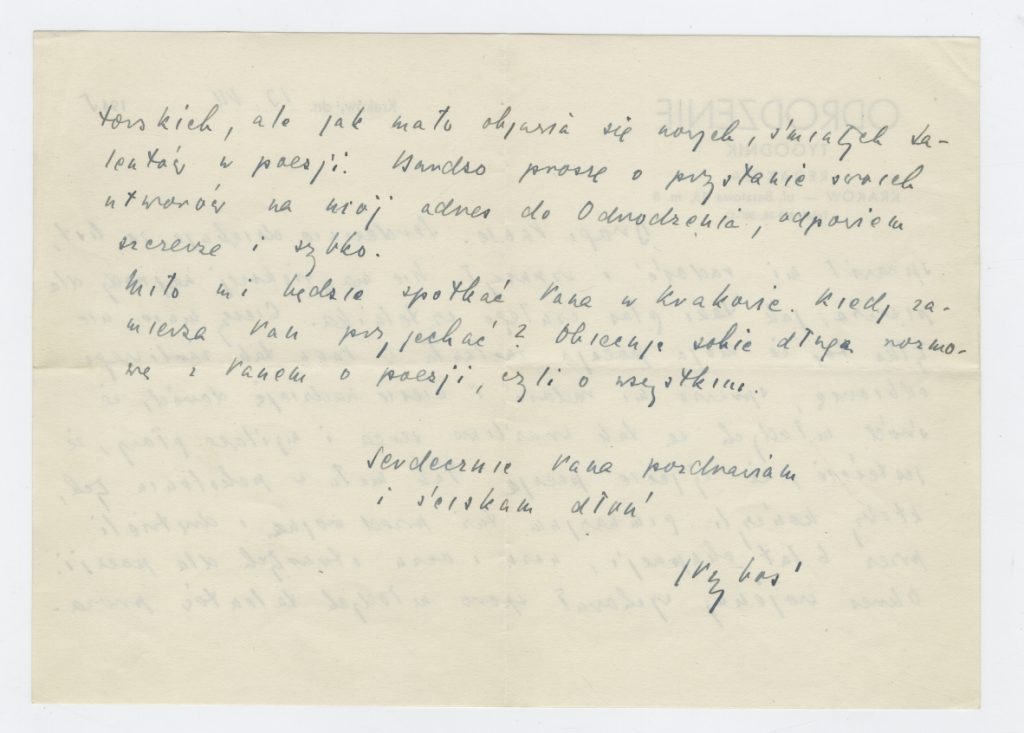 torskich, ale jak mało objawia się nowych, śmiałych ta-
lentów w poezji. Bardzo proszę o przysłanie swoich
utworów na mój adres do Odrodzenia, odpowiem
szczerze i szybko.
Miło mi będzie spotkać Pana w Krakowie. Kiedy za-
mierza Pan przyjechać? Obiecuję sobie długą rozmo-
wę z Panem o poezji, czyli o wszystkim.
Serdecznie Pana pozdrawiam
i ściskam dłoń
JPrzyboś